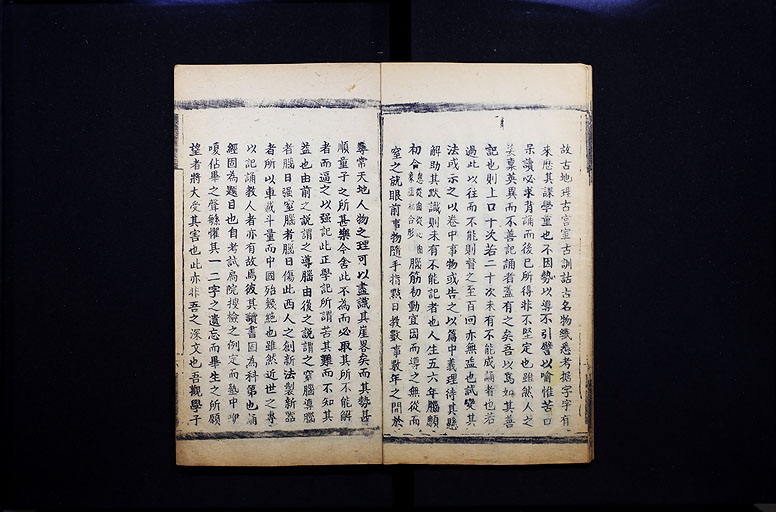 故古地理古宮室古訓詁古名物纖悉考據字字有
來歷其課學童也不因勢以導不引譬以喻惟苦口
呆讀必求背誦而後已所得非不堅定也雖然人之
姿稟英異而不善記誦者蓋有之矣吾以爲如其善
記也則上口十次若二十次未有不能成誦者也若
過此以往而不能則督之至百回亦無益也試變其
法或示之以卷中事物或告之以篇中義理待其懸
解助其默識則未有不能記者也人生五六年腦顖
初合思從囟從心囟象腦初合形腦筋初動宜因而導之無從而
窒之就眼前事物隨手指點日教數事數年之間於
尋常天地人物之理可以盡識其崖畧矣而其勢甚
順童子之所甚樂今舍此不為而必取其所不能解
者而逼之以强記此正學記所謂苦其難而不知其
益也由前之說謂之導腦由後之說謂之窒腦導腦
者腦日强窒腦者腦日傷此西人之創新法製新器
者所以車載斗量而中國殆幾絕也雖然近世之專
以記誦教人者亦有故焉彼其讀書固為科第也誦
經固為題目也自考試扃院搜檢之例定而塾中
嗄佔畢之聲繇懼其一二字之遺忘而畢生之所願
望者將大受其害也此亦非吾之深文也吾觀學子